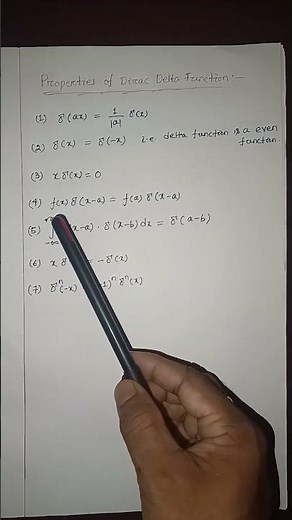 Properties of Dirac Delta Function:-
(1) δ(ax) = 1/|a| δ(x)
(2) δ(x) = δ(-x) i.e. delta function is a even function.
(3) x δ(x) = 0
(4) f(x) δ(x-a) = f(a) δ(x-a)
(5) x-a) . δ(x-b) dx = δ(a-b)
(6) x δ = - δ(x)
(7) δⁿ(-x) 1)ⁿ δⁿ(x)